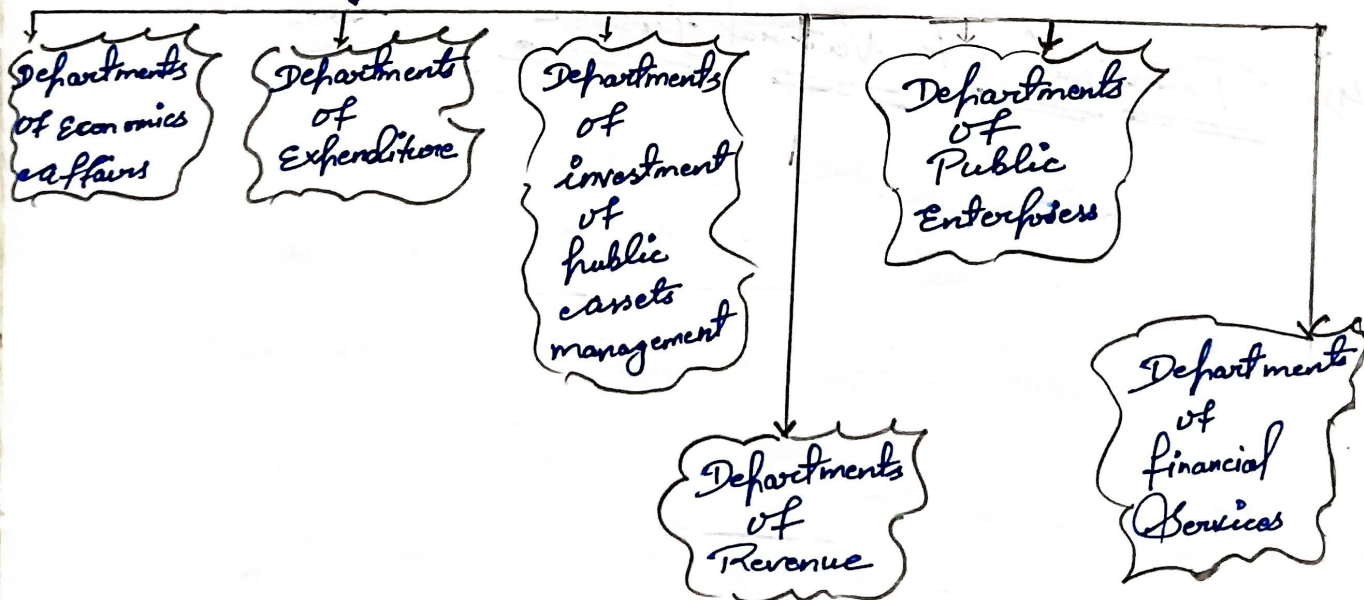 Departments
of Economics
affairs
Departments
of
Expenditure
Departments
of
investment
of
public
assets
management
Departments
of
Revenue
Departments
of
Public
Enterpriess
Departments
of
financial
Services